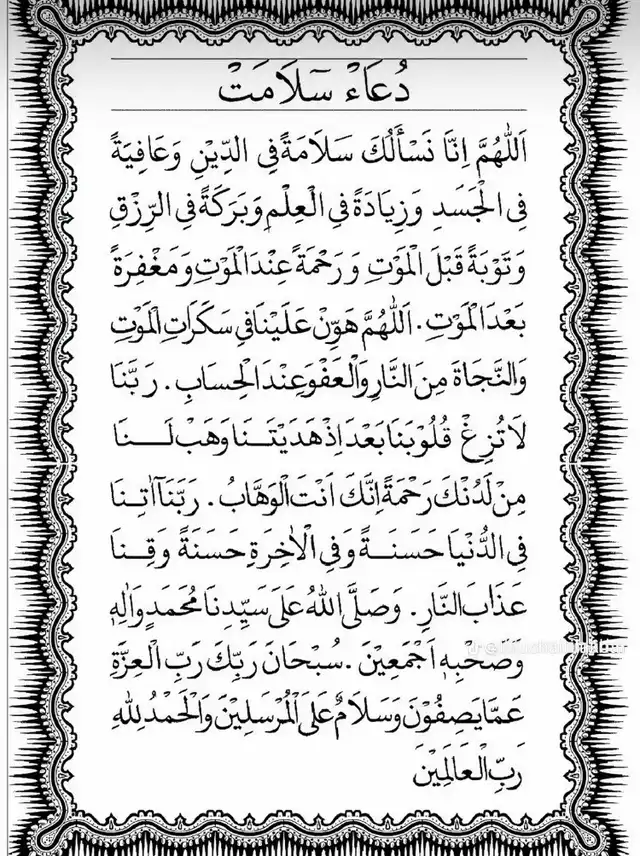 دُعَاءْ سَلَامَتْ
اَللّٰهُمَّ اِنَّا نَسْأَلُكَ سَلَامَةً فِى الدِّيْنِ وَعَافِيَةً
فِى الْجَسَدِ وَزِيَادَةً فِى الْعِلْمِ وَبَرَكَةً فِى الرِّزْقِ
وَتَوْبَةً قَبْلَ الْمَوْتِ وَرَحْمَةً عِنْدَ الْمَوْتِ وَمَغْفِرَةً
بَعْدَ الْمَوْتِ. اَللّٰهُمَّ هَوِّنْ عَلَيْنَا فِى سَكَرَاتِ الْمَوْتِ
وَالنَّجَاةَ مِنَ النَّارِ وَالْعَفْوَ عِنْدَ الْحِسَابِ. رَبَّنَا
لَا تُزِغْ قُلُوْبَنَا بَعْدَ اِذْ هَدَيْتَنَا وَهَبْ لَنَا
مِنْ لَدُنْكَ رَحْمَةً اِنَّكَ اَنْتَ الْوَهَّابُ. رَبَّنَا اٰتِنَا
فِى الدُّنْيَا حَسَنَةً وَفِى الْاٰخِرَةِ حَسَنَةً وَقِنَا
عَذَابَ النَّارِ. وَصَلَّى اللهُ عَلَى سَيِّدِنَا مُحَمَدٍ وَاٰلِهٖ
وَصَحْبِهٖ اَجْمَعِيْنَ. سُبْحَانَ رَبِّكَ رَبِّ الْعِزَّةِ
عَمَّا يَصِفُوْنَ وَسَلَامٌ عَلَى الْمُرْسَلِيْنَ وَالْحَمْدُ لِلّٰهِ
رَبِّ الْعَالَمِيْنَ